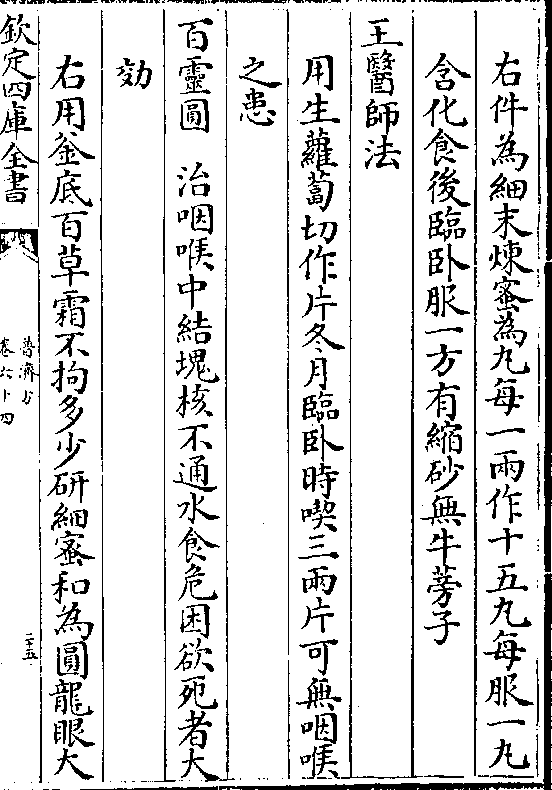 右件為細末煉蜜為丸每一兩作十五丸每服一丸
含化食後臨卧服一方有縮砂無牛蒡子
王醫師法
用生蘿蔔切作片冬月臨卧時喫三兩片可無咽喉
之患
百靈圓　治咽喉中結塊核不通水食危困欲死者大
効
右用釜底百草霜不拘多少研細蜜和為圓龍眼大
欽定四庫全書
普濟方
卷六十四
二十五